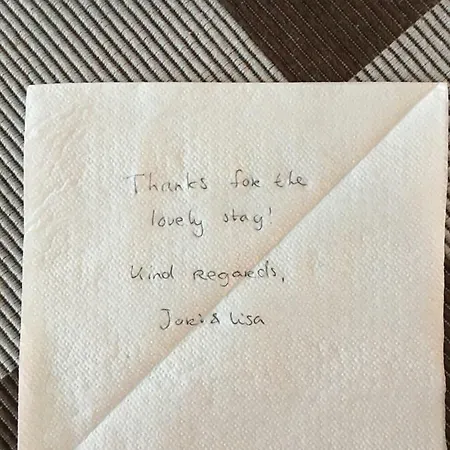 Thanks for the
lovely stay!
Kind Regards,
Jori & Lisa